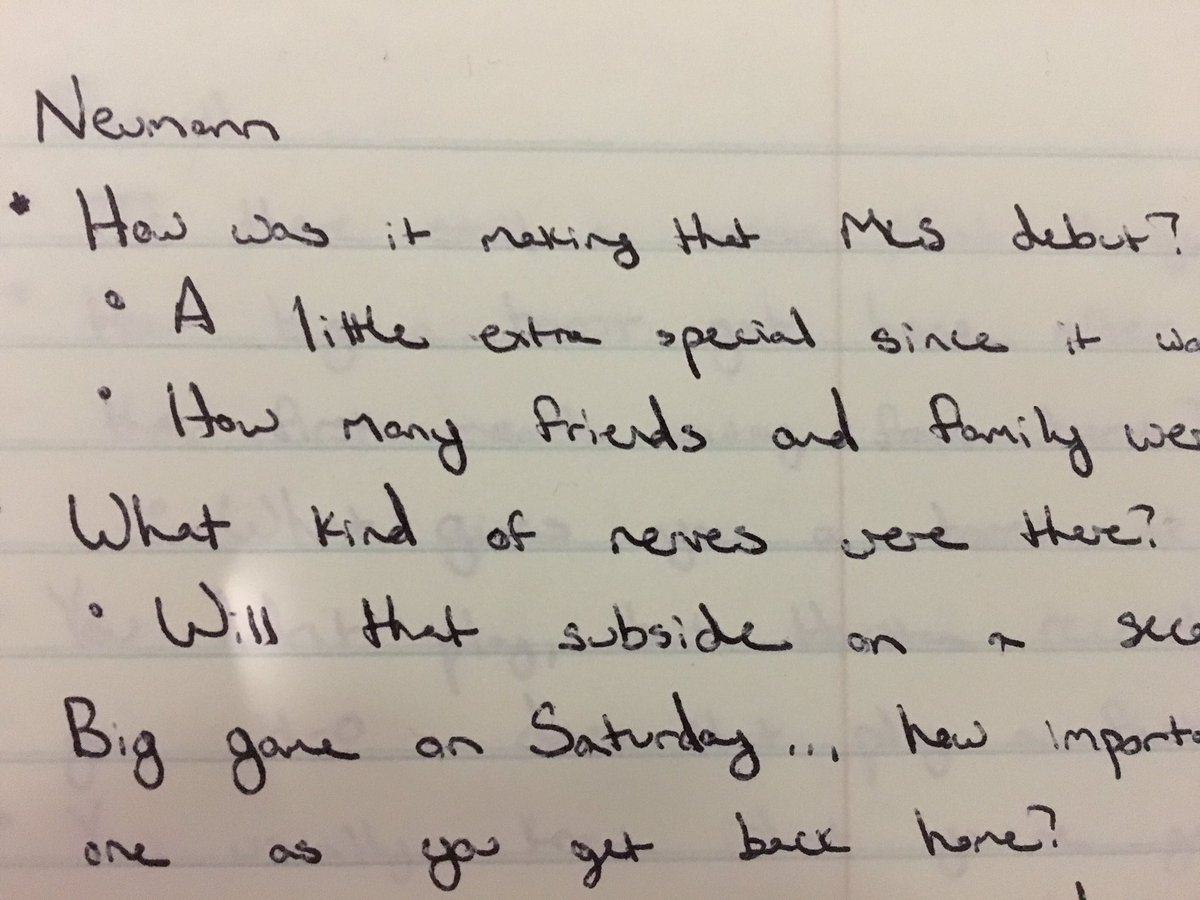 Neumann
* How was it making that MLS debut?
• A little extra special since it wa
• How many friends and family wer
What kind of nerves were there?
• Will that subside on a seco
Big game on Saturday... how importa
one as you get back home?